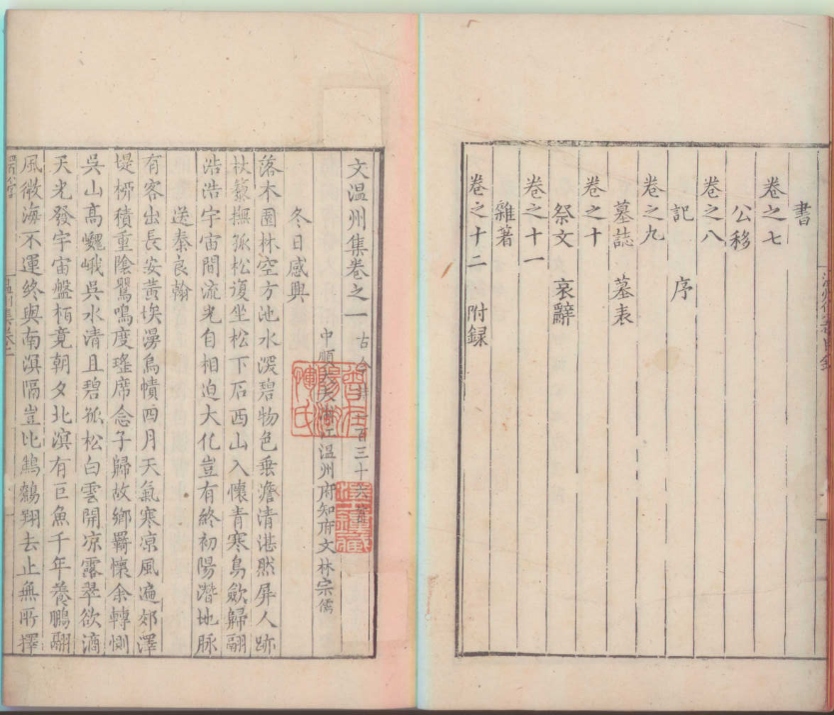 書
卷之七
公移
卷之八
記 序
卷之九
墓誌 墓表
卷之十
祭文 哀辭
卷之十一
雜著
卷之十二 附録
文温州集卷之一
古今詩一百三十
中順大夫浙江温州府知府文林宗儒
冬日感興
落木園林空方池水深碧物色垂澹清湛然屏人跡
扶藜撫孤松復坐松下石西山入懷青寒鳥歛歸翮
浩浩宇宙間流光自相迫大化豈有終初陽潛地脉
送秦良翰
有客出長安黄埃湯烏幘四月天氣寒凉風遍郊澤
堤柳積重陰鴛鳴度瑤席念子歸故鄉羇懷余轉惻
吳山高巍峨吳水清且碧孤松白雲開凉露翠欲滴
天光發宇宙盤栢竟朝夕北溟有巨魚千年養鵬翮
風微海不運終與南溟隔豈比鷦鷯翔去止無所擇